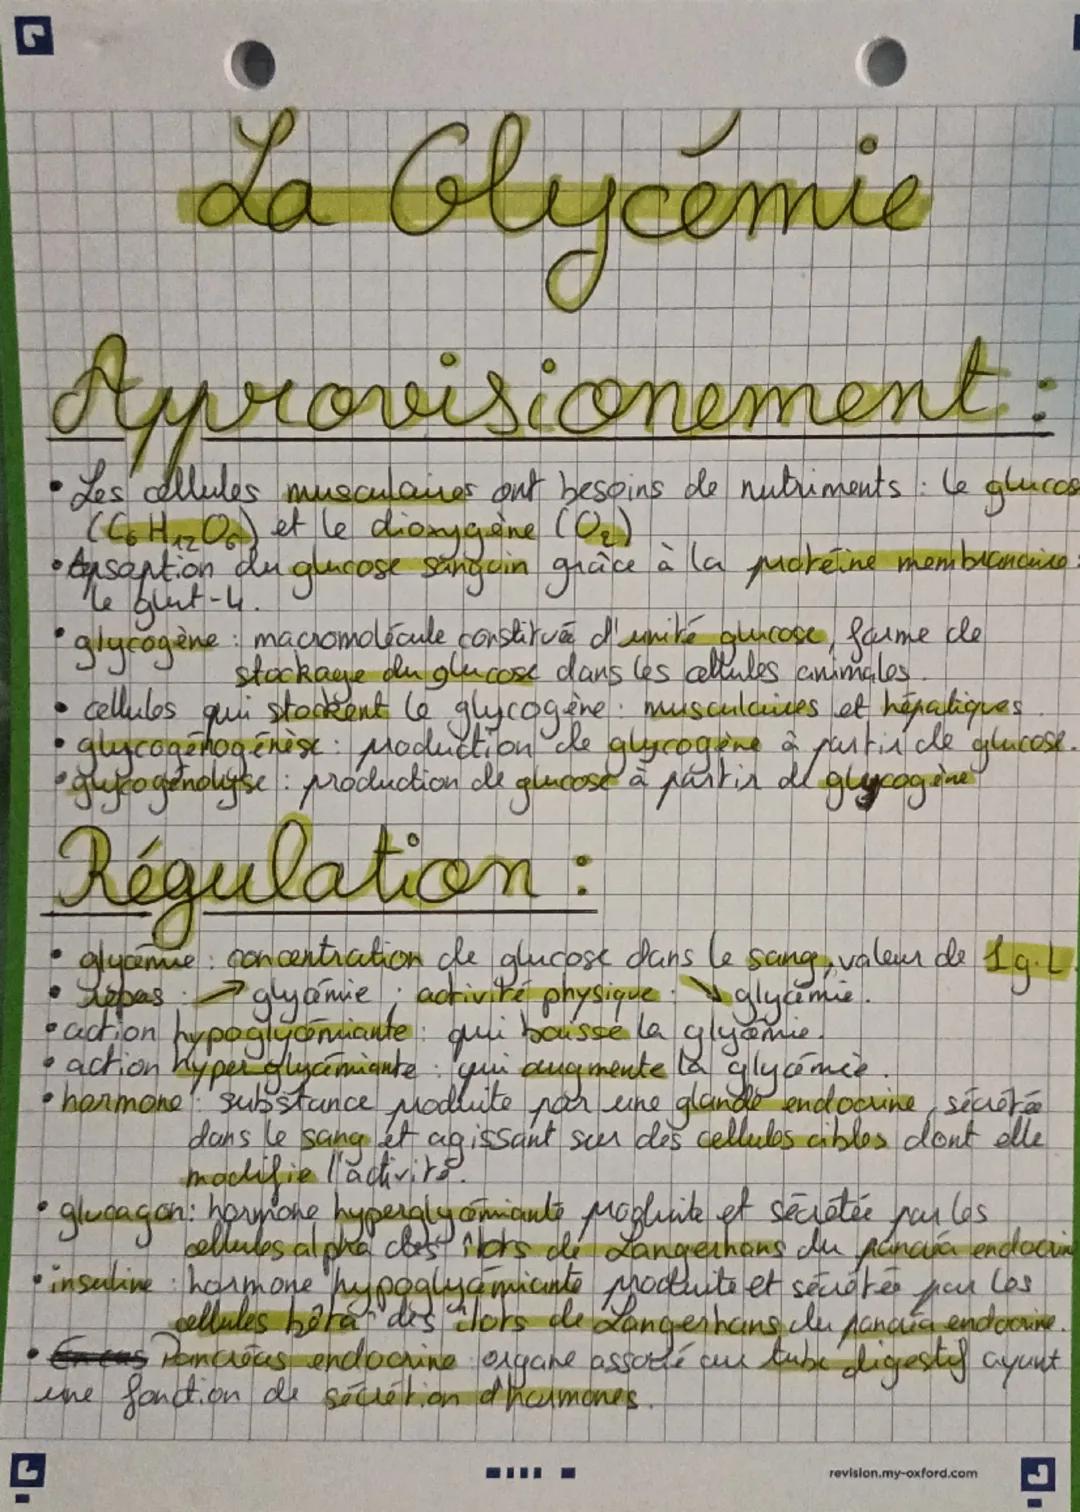 La Glycémie
Approvisionement :
• Les cellules musculaires ont besoins de nutriments : le glucos
(C6 H12 O6) et le dioxygène (O2)
• Apsoption du glucose sanguin grâce à la protéine membranaire :
le glut-4.
• glycogène : macromolécule constituée d'unité glucose, forme de
stockage du glucose dans les cellules animales.
• cellules qui stockent le glycogène : musculaires et hépatiques.
• glycogénogénèse : production de glycogène à partir de glucose.
• glycogénolyse : production de glucose à partir de glycogène
Régulation :
• glycémie : concentration de glucose dans le sang, valeur de 1g.L
• repas : ↗ glycémie ; activité physique : ↘ glycémie.
• action hypoglycémiante : qui baisse la glycémie.
• action hyperglycémiante : qui augmente la glycémie.
• hormone : substance produite par une glande endocrine, sécrétée
dans le sang et agissant sur des cellules cibles dont elle
modifie l'activité.
• glucagon : hormone hyperglycémiante produite et sécrétée par les
cellules alpha des îlots de Langerhans du pancréa endocrin
• insuline : hormone hypoglycémiante produite et sécrétée par les
cellules bêta des îlots de Langerhans du pancréa endocrine.
• En cas Pancréas endocrine : organe associé au tube digestif ayant
une fonction de sécrétion d'hormones.
revision.my-oxford.com